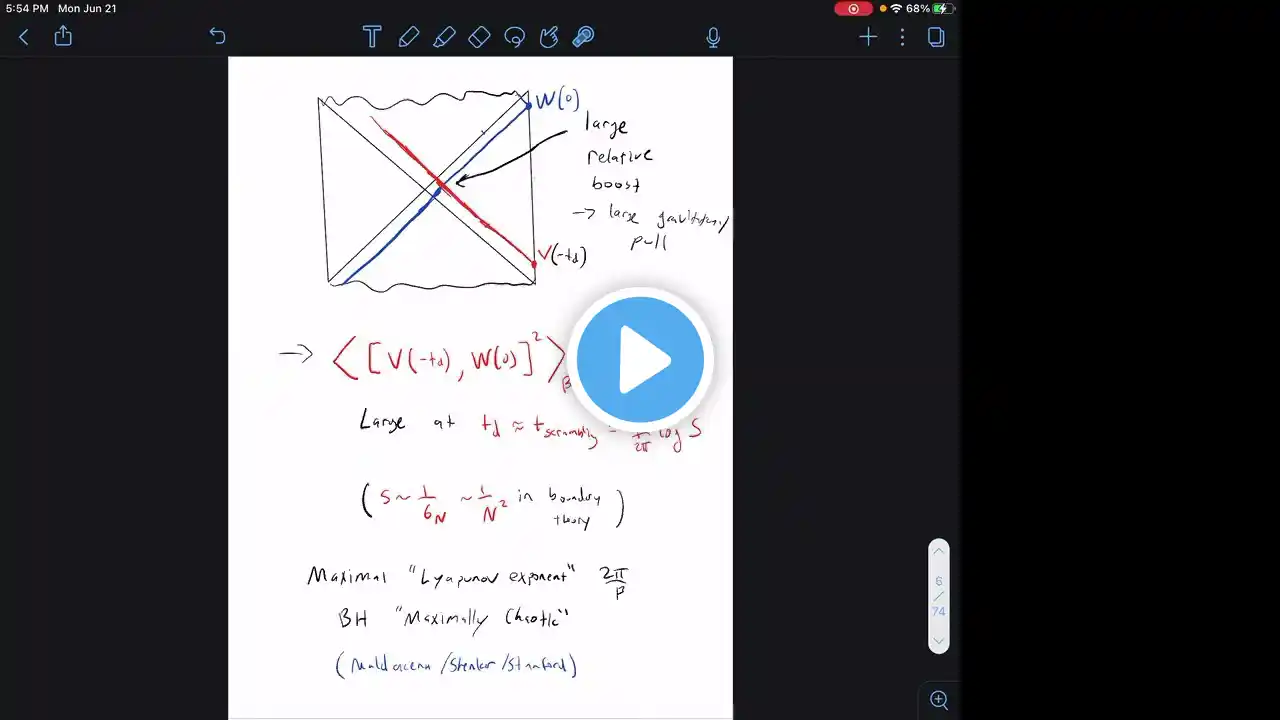 5:54 PM Mon Jun 21
68%
W(0)
large
relative
boost
→ large
pull
V(-td)
→ ⟨[V(-td), W(0)]²⟩β
Large at td ≈ tscrambling
2π log S
(S ~ 1/GN ~ 1/N² in boundary
theory)
Maximal "Lyapunov exponent" 2π/β
BH "Maximally Chaotic"
(Maldacena/Shenker/Stanford)
6
/
74